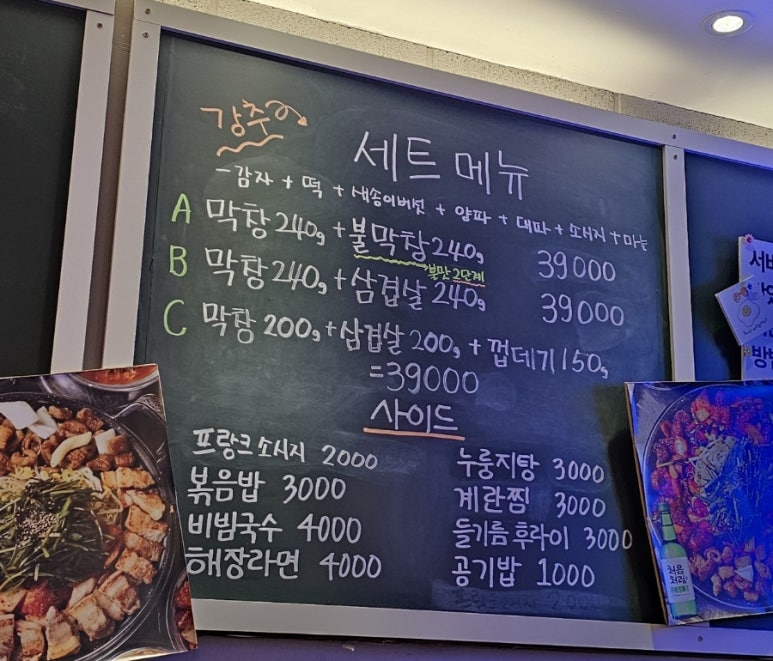 강추
세트 메뉴
- 감자 + 떡 + 새송이버섯 + 양파 + 대파 + 소시지 + 마늘
A 막창 240g + 불막창 240g 39000
불맛 2단계
B 막창 240g + 삼겹살 240g 39000
C 막창 200g + 삼겹살 200g + 껍데기 150g
= 39000
사이드
프랑크 소시지 2000
볶음밥 3000
비빔국수 4000
해장라면 4000
누룽지탕 3000
계란찜 3000
들기름 후라이 3000
공기밥 1000
처음
처럼
서비
방법